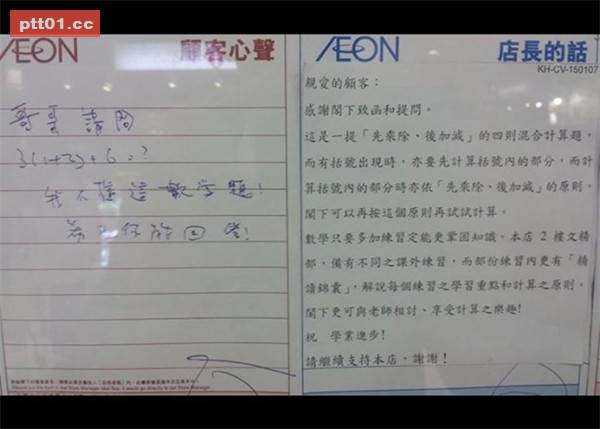 ptt01.cc
AEON 顧客心聲
哥哥 請問
3(1+3)+6=?
我不懂這數學題!
希望你能回答!
AEON 店長的話
KH-CV-150107
親愛的顧客：
感謝閣下致函和提問。
這是一提「先乘除、後加減」的四則混合計算題，
而有括號出現時，亦要先計算括號內的部分，而計
算括號內的部分時亦依「先乘除、後加減」的原則。
閣下可以再按這個原則再試試計算。
數學只要多加練習定能更鞏固知識。本店 2 樓文精
部，備有不同之課外練習，而部份練習內更有「精
讀錦囊」，解說每個練習之學習重點和計算之原則。
閣下更可與老師相討、享受計算之樂趣!
祝 學業進步!
請繼續支持本店，謝謝!